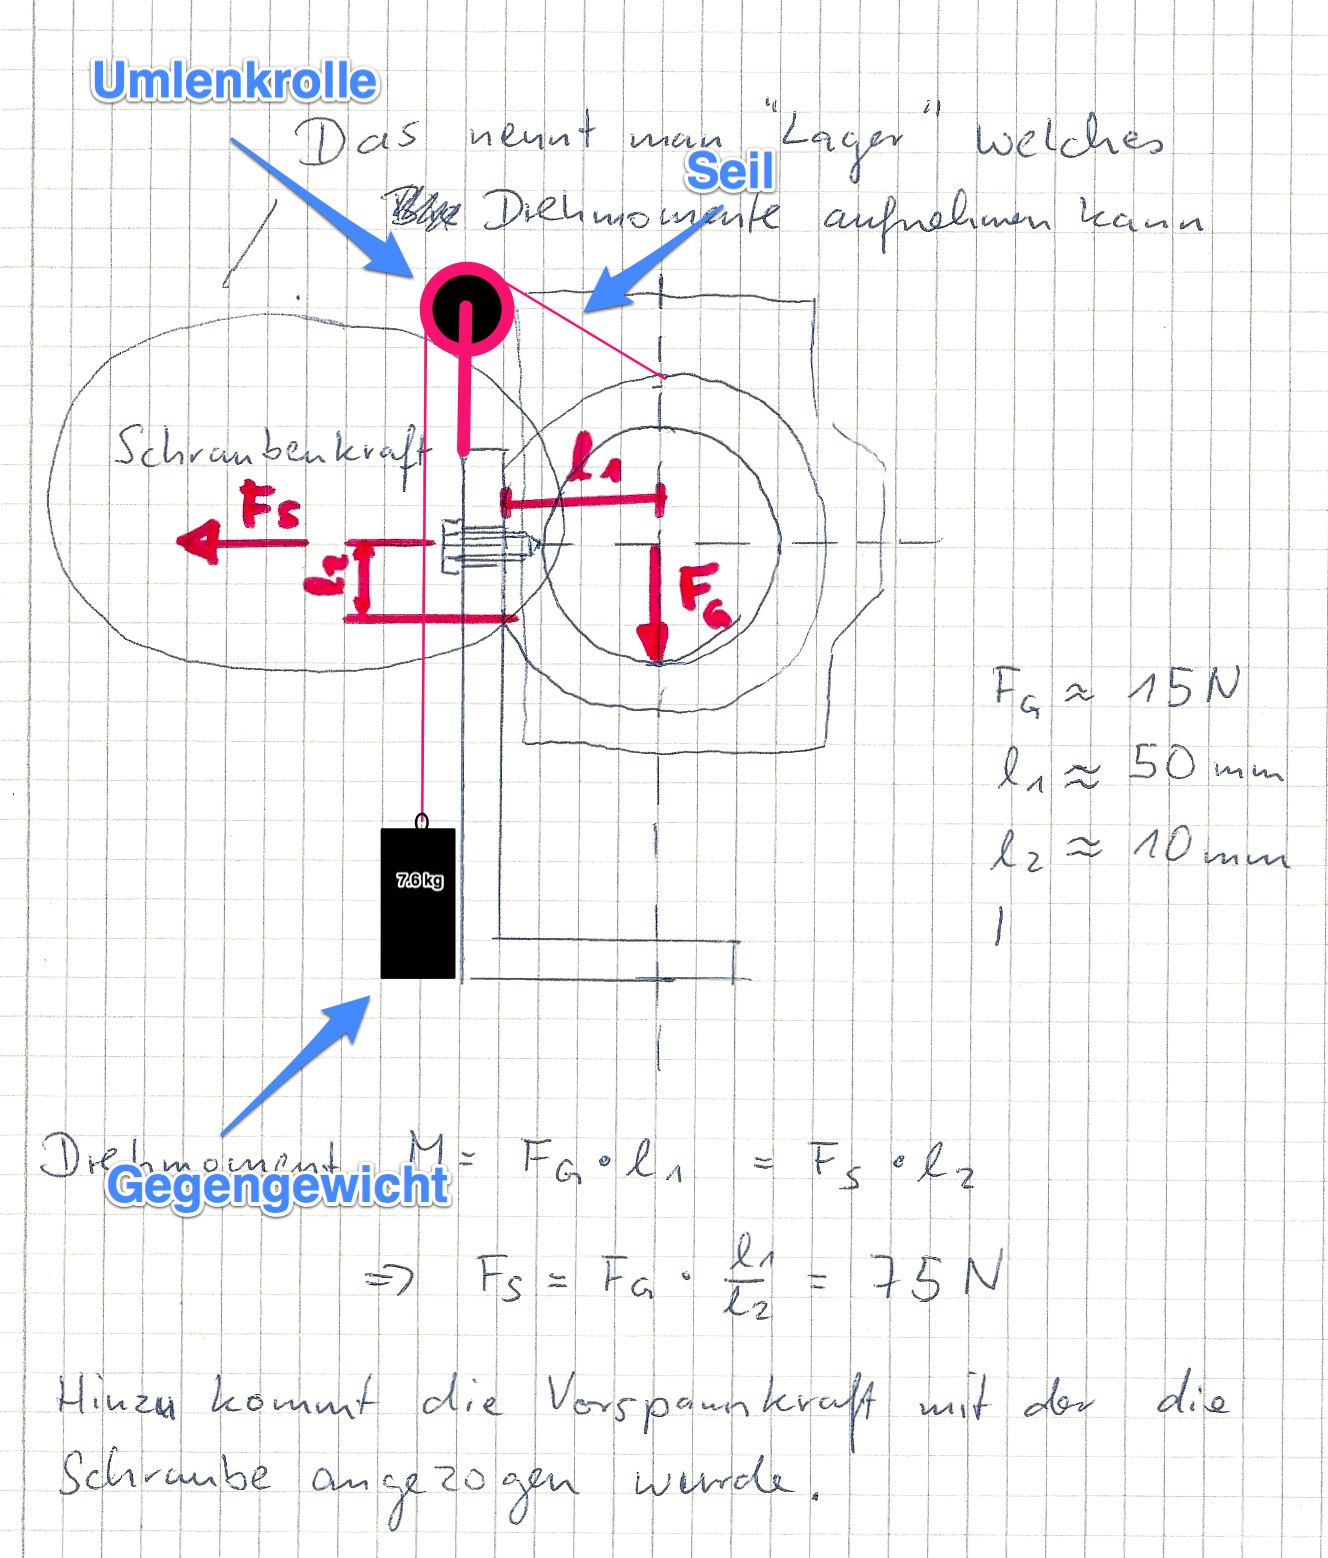 Umlenkrolle
Das nennt man "Lager" welches
Seil
Drehmomente aufnehmen kann
Schraubenkraft
l1
Fs
l2
FG
FG ≈ 15 N
l1 ≈ 50 mm
l2 ≈ 10 mm
7.6 kg
Drehmoment M = FG · l1 = FS · l2
Gegengewicht
=> FS = FG · l1/l2 = 75 N
Hinzu kommt die Vorspannkraft mit der die
Schraube angezogen wurde.